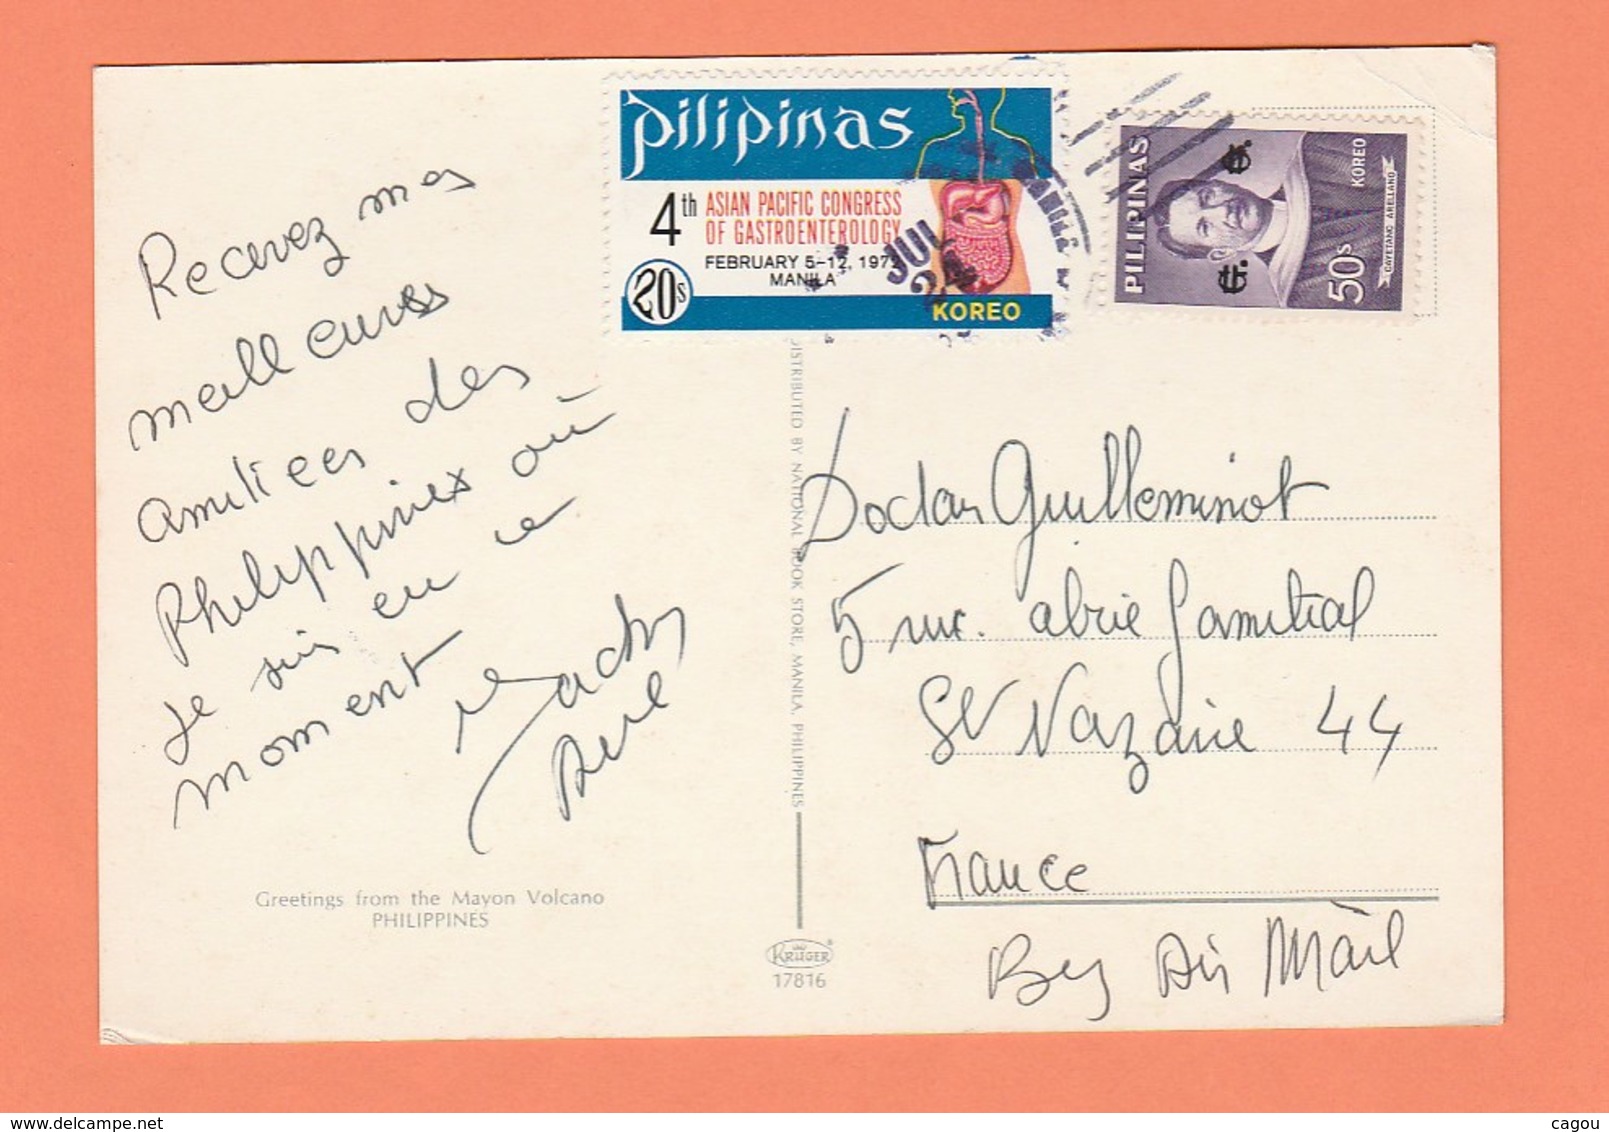 Recevez mes
meilleures
amitiées des
Philippines où
je suis en ce
moment
Greetings from the Mayon Volcano
PHILIPPINES
pilipinas
4th ASIAN PACIFIC CONGRESS
OF GASTROENTEROLOGY
FEBRUARY 5-12, 197
MANILA
20s
KOREO
JUL
24
MANILA
PILIPINAS
G. G.
50s
KOREO
CAYETANO ARELLANO
DISTRIBUTED BY NATIONAL BOOK STORE, MANILA, PHILIPPINES
KRÜGER
17816
Docteur Guilleminot
5 rue
St Nazaire 44
France
By Air Mail
www.delcampe.net
cagou